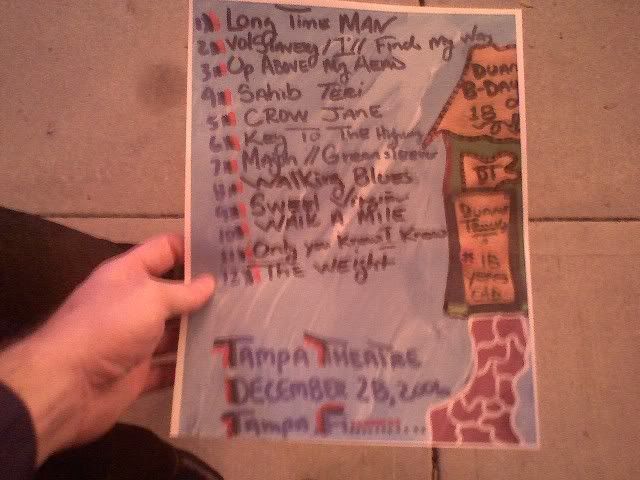 1 Long Time MAN
2 Volslavery / I'll Find My Way
3 Up Above My Head
4 Sahib Teri
5 CROW JANE
6 Key To The Highway
7 // Greensleeves
8 Walking Blues
9 Sweet
10 WALK A MILE
11 Only you Know I Know
12 THE WEIGHT
DUAN
B-DAY
18
DT
18
years
TAMPA THEATRE
DECEMBER 28,
TAMPA